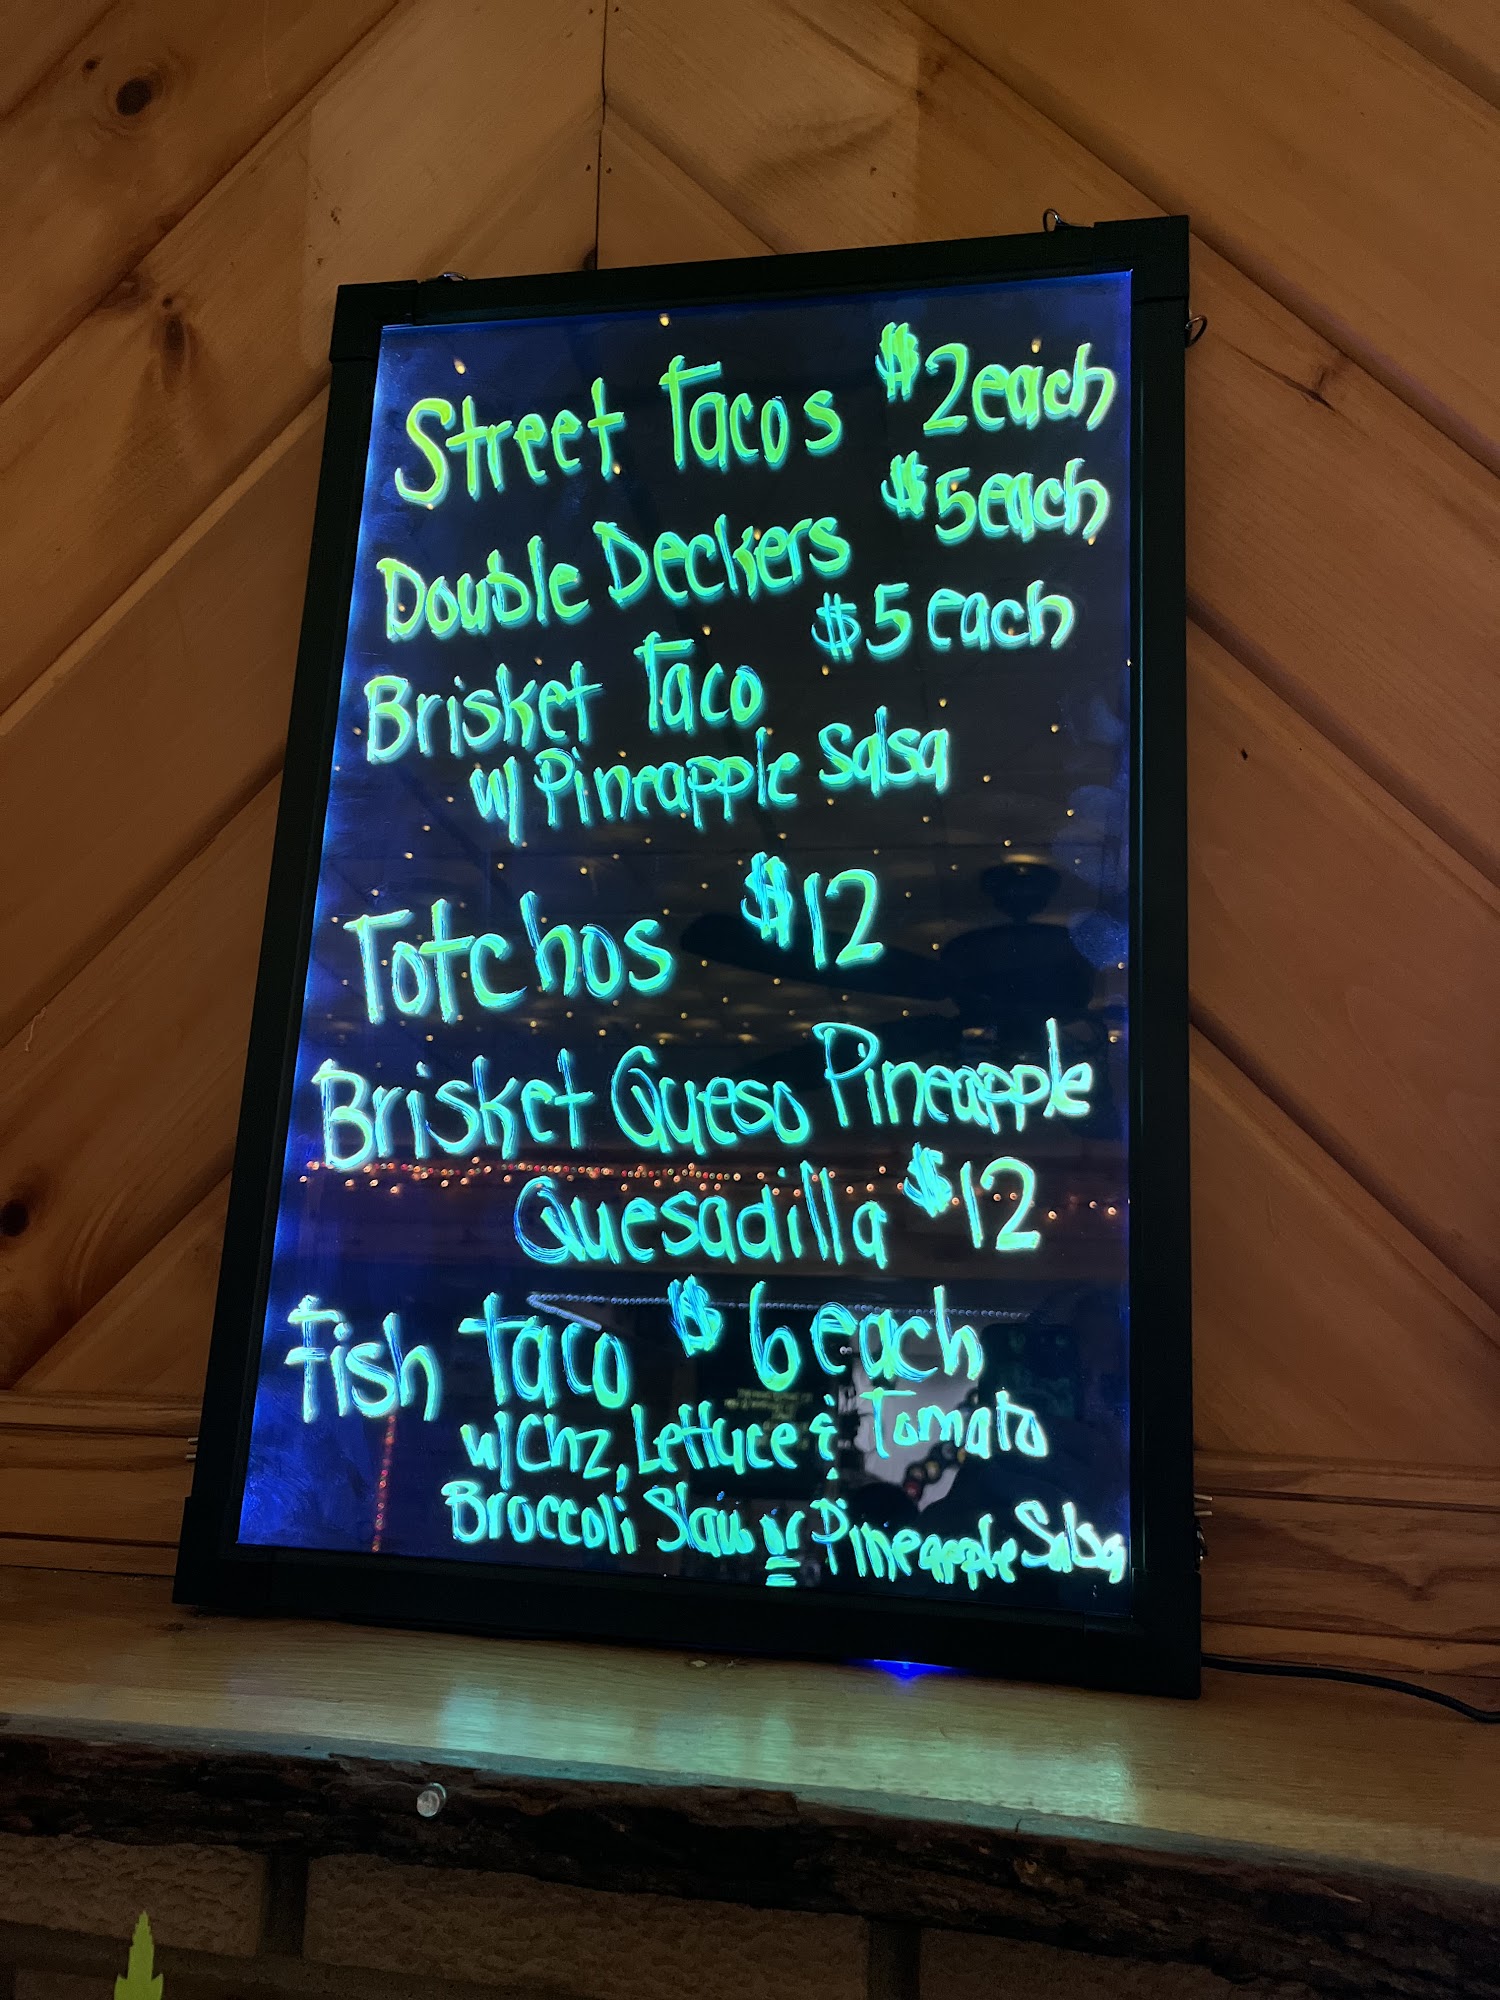 Street Tacos $2 each
Double Deckers $5 each
Brisket Taco $5 each
w/ Pineapple Salsa
Totchos $12
Brisket Queso Pineapple
Quesadilla $12
Fish Taco $6 each
w/Chz, Lettuce & Tomato
Broccoli Slaw or Pineapple Salsa